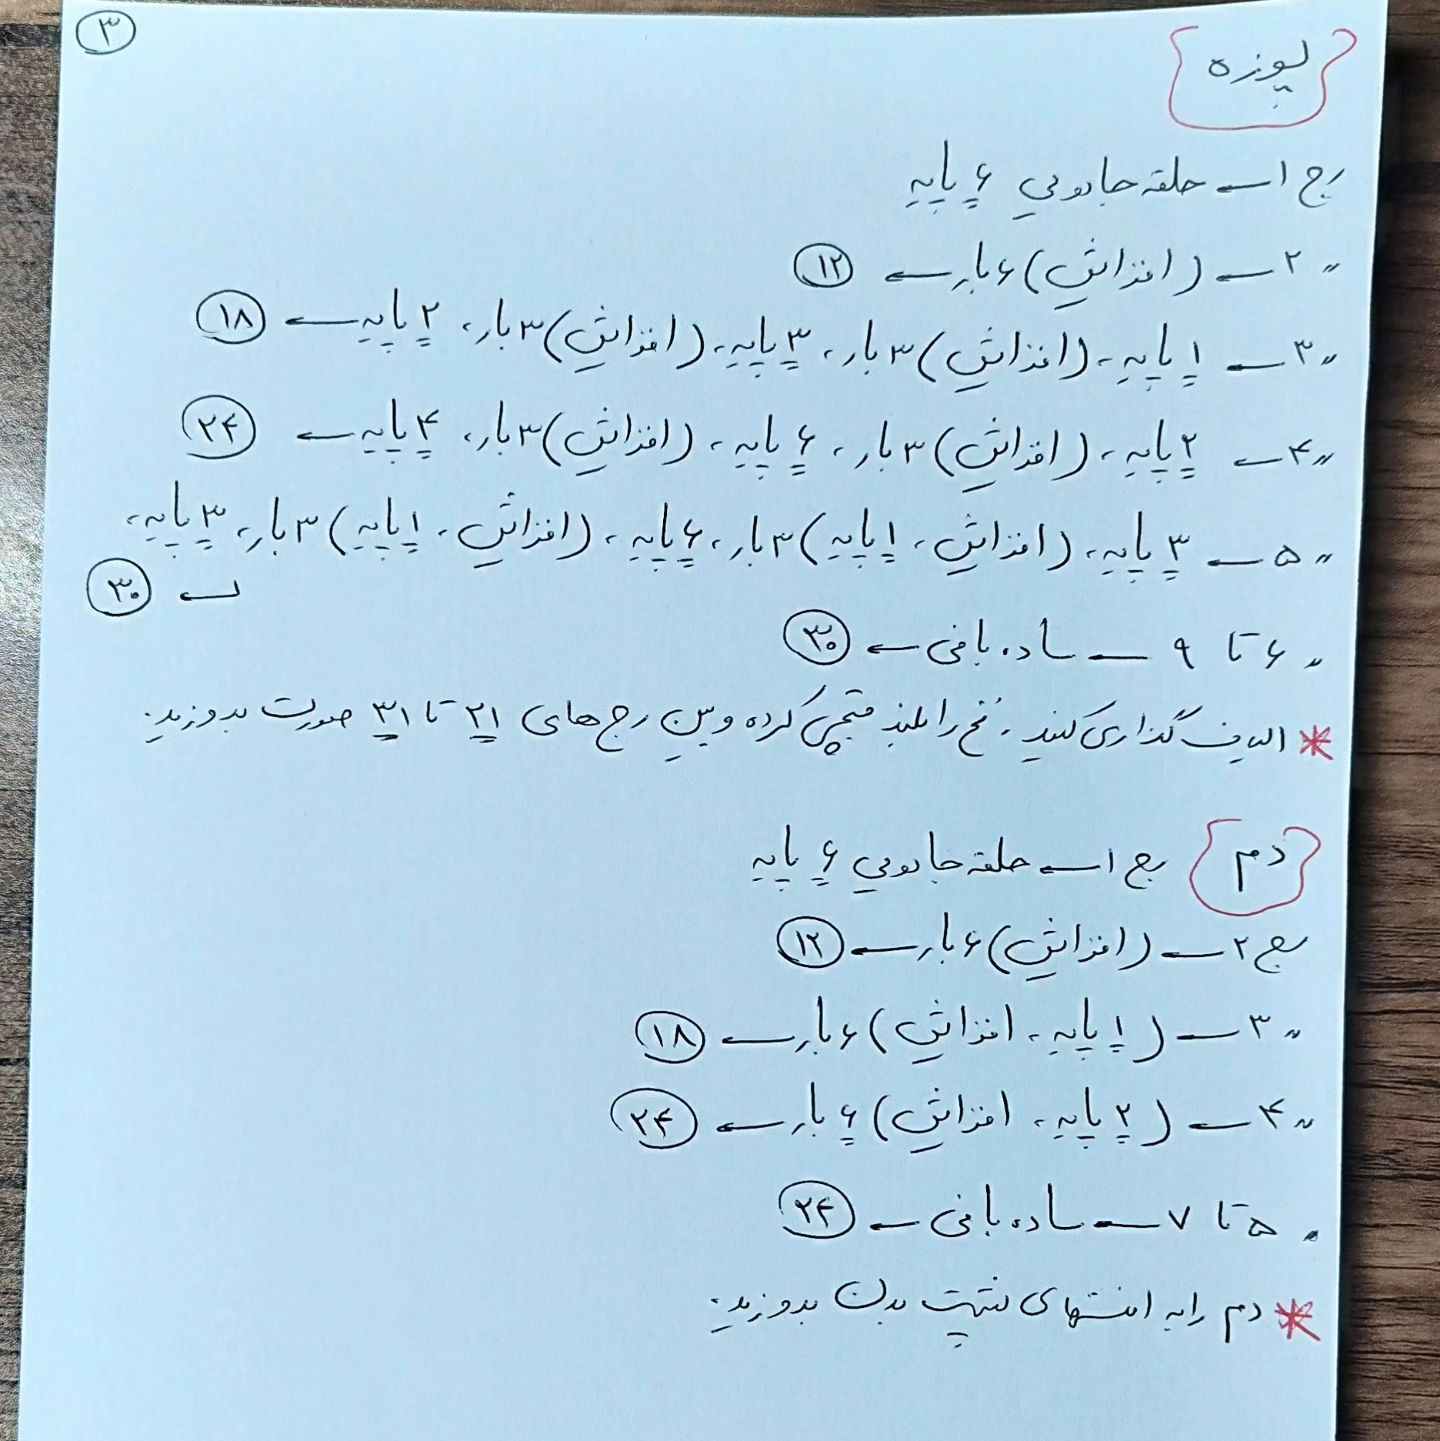 ۳
پوزه
رج ۱ ← حلقه جادویی ۶ پایه
〃 ۲ ← (افزایش) ۶ بار ← ۱۲
〃 ۳ ← ۱ پایه، (افزایش) ۳ بار، ۳ پایه، (افزایش) ۳ بار، ۲ پایه ← ۱۸
〃 ۴ ← ۲ پایه، (افزایش) ۳ بار، ۶ پایه، (افزایش) ۳ بار، ۴ پایه ← ۲۴
〃 ۵ ← ۳ پایه، (افزایش، ۱ پایه) ۳ بار، ۶ پایه، (افزایش، ۱ پایه) ۳ بار، ۳ پایه،
← ۳۰
〃 ۶ تا ۹ ← ساده بافی ← ۳۰
* الیاف گذاری کنید. نخ را بلند قیچی کرده و بین رج های ۲۱ تا ۳۱ صورت بدوزید.
دم رج ۱ ← حلقه جادویی ۶ پایه
رج ۲ ← (افزایش) ۶ بار ← ۱۲
〃 ۳ ← (۱ پایه، افزایش) ۶ بار ← ۱۸
〃 ۴ ← (۲ پایه، افزایش) ۶ بار ← ۲۴
〃 ۵ تا ۷ ← ساده بافی ← ۲۴
* دم را به انتهای پشت بدن بدوزید.